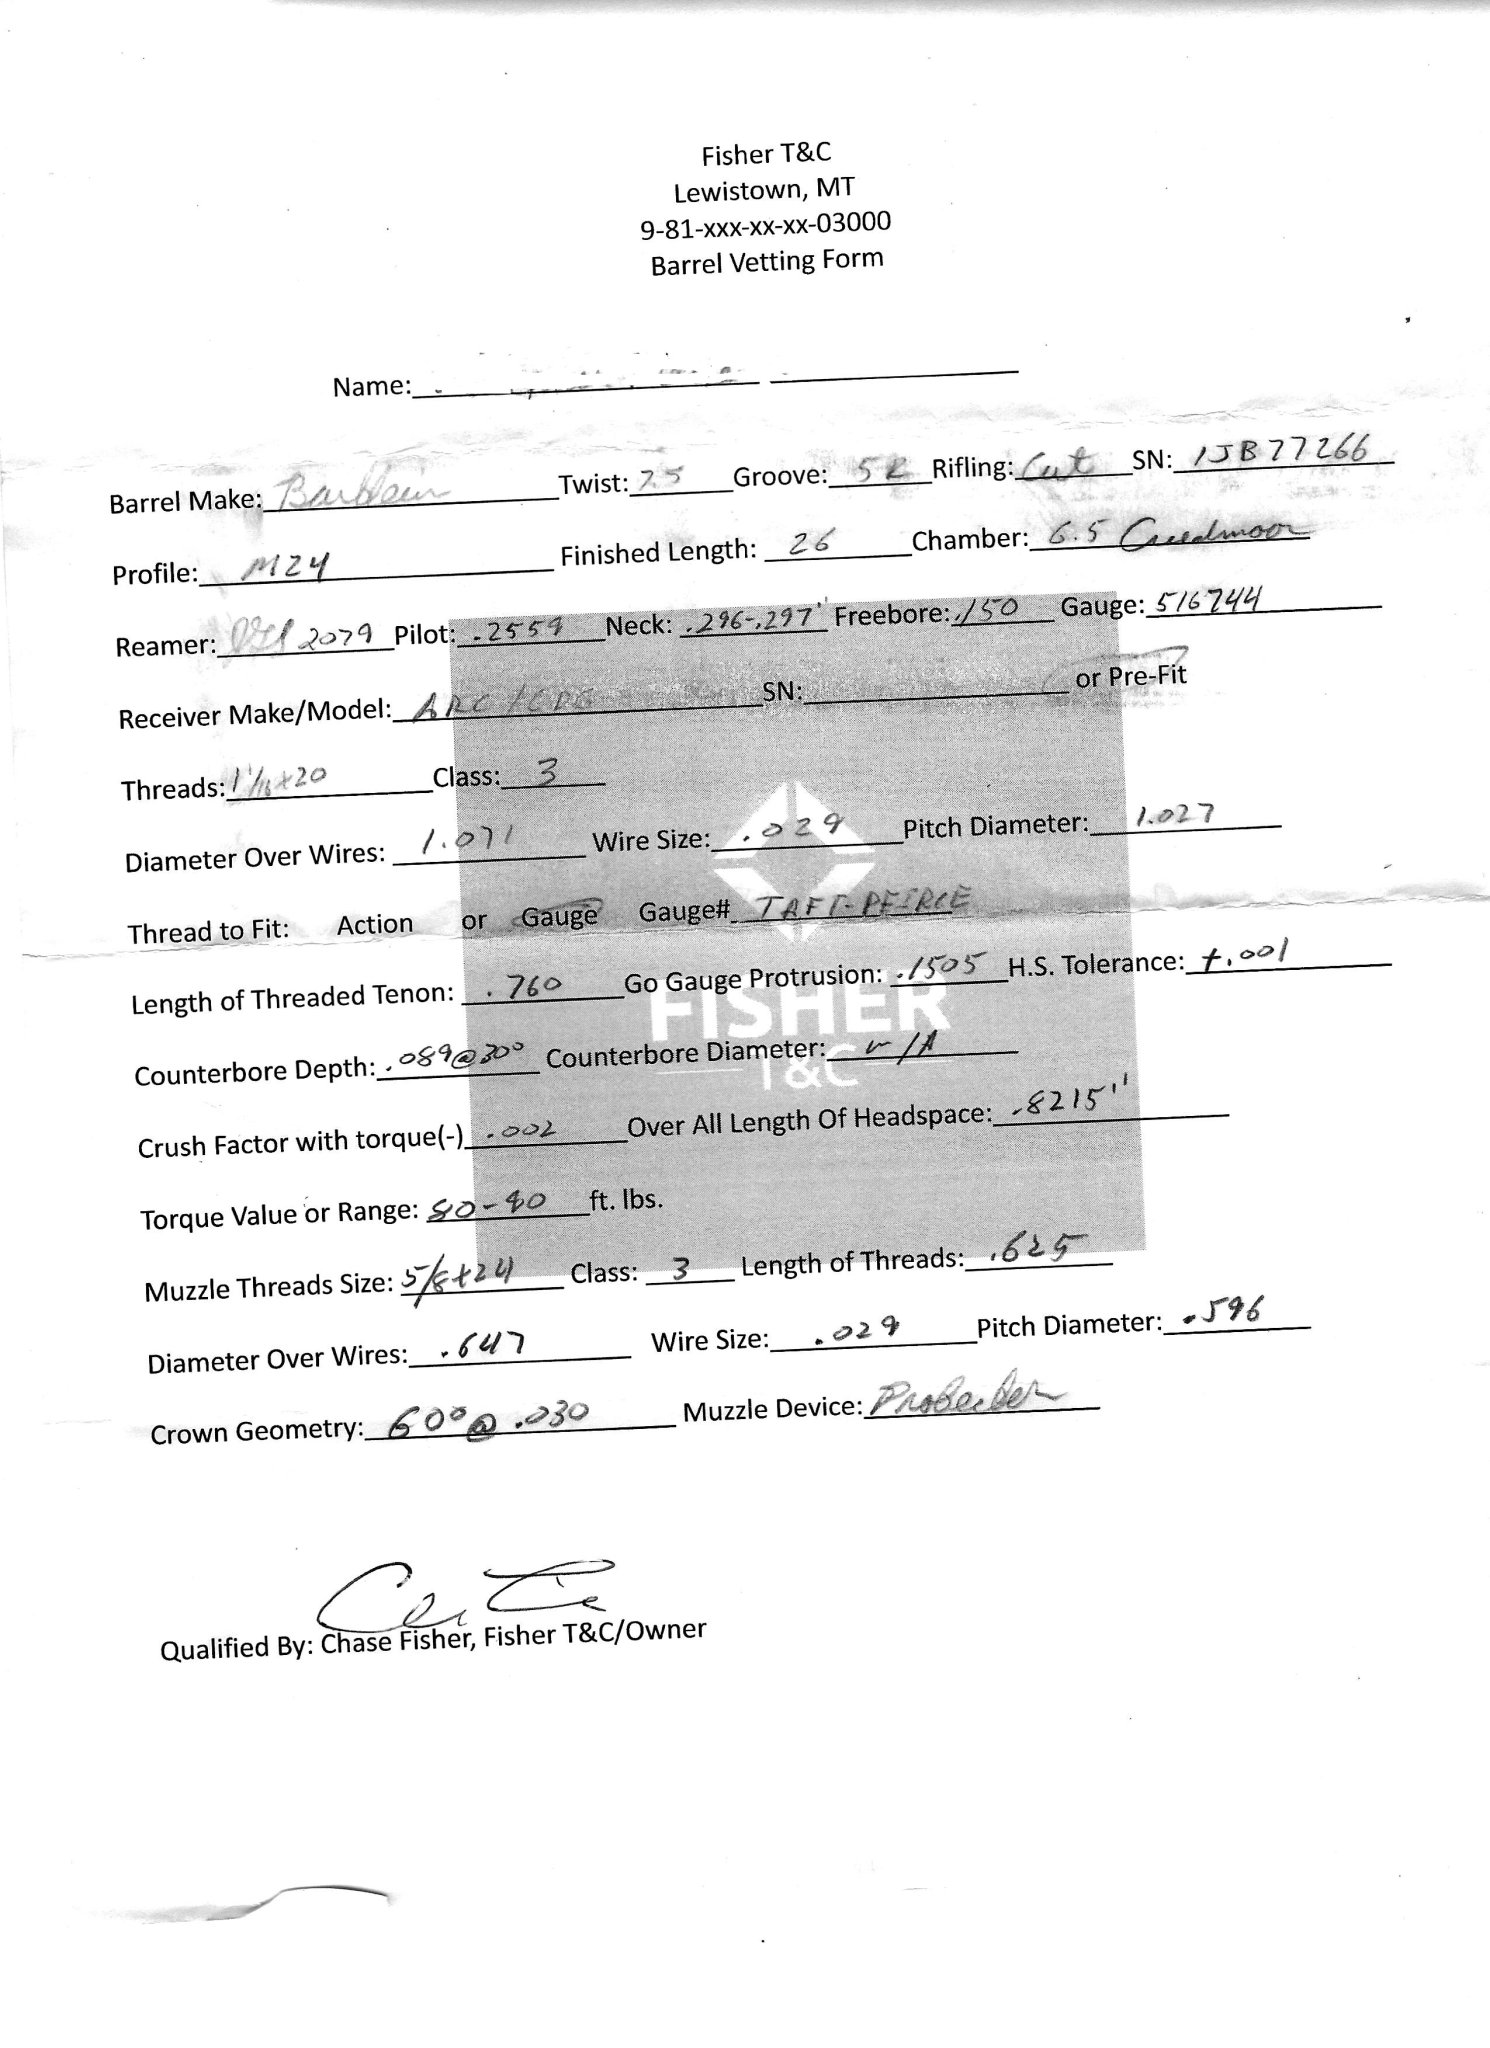 Fisher T&C
Lewistown, MT
9-81-xxx-xx-xx-03000
Barrel Vetting Form
Name:
Barrel Make: Bartlein Twist: 7.5 Groove: 5R Rifling: Cut SN: 1JB77266
Profile: M24 Finished Length: 26 Chamber: 6.5 Creedmoor
Reamer: 2079 Pilot: .2559 Neck: .296-.297" Freebore: .150 Gauge: 516744
Receiver Make/Model: ARC SN: or Pre-Fit
Threads: 1 1/16x20 Class: 3
Diameter Over Wires: 1.071 Wire Size: .029 Pitch Diameter: 1.027
Thread to Fit: Action or Gauge Gauge# TAFT-PEIRCE
Length of Threaded Tenon: .760 Go Gauge Protrusion: .1505 H.S. Tolerance: +.001
FISHER
Counterbore Depth: .089@30° Counterbore Diameter: N/A
T&C
Crush Factor with torque(-) .002 Over All Length Of Headspace: .8215"
Torque Value or Range: 80-90 ft. lbs.
Muzzle Threads Size: 5/8x24 Class: 3 Length of Threads: .625
Diameter Over Wires: .647 Wire Size: .029 Pitch Diameter: .596
Crown Geometry: 60°@.030 Muzzle Device:
Qualified By: Chase Fisher, Fisher T&C/Owner